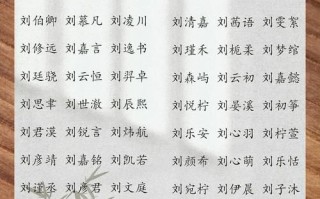 刘伯卿 刘慕凡 刘凌川 刘清嘉 刘茜语 刘雯絮
刘修远 刘嘉言 刘逸书 刘瑾禾 刘栀柔 刘梦绾
刘廷骁 刘云恒 刘羿卓 刘森屿 刘云初 刘嘉懿
刘思聿 刘世澈 刘辰熙 刘悦柠 刘晏溪 刘初筝
刘君漠 刘锐言 刘炜航 刘乐安 刘心羽 刘柠萱
刘彦靖 刘嘉铭 刘凯若 刘颜希 刘心萌 刘乐恬
刘谨丞 刘彦君 刘文庭 刘宛柠 刘伊晨 刘子沐